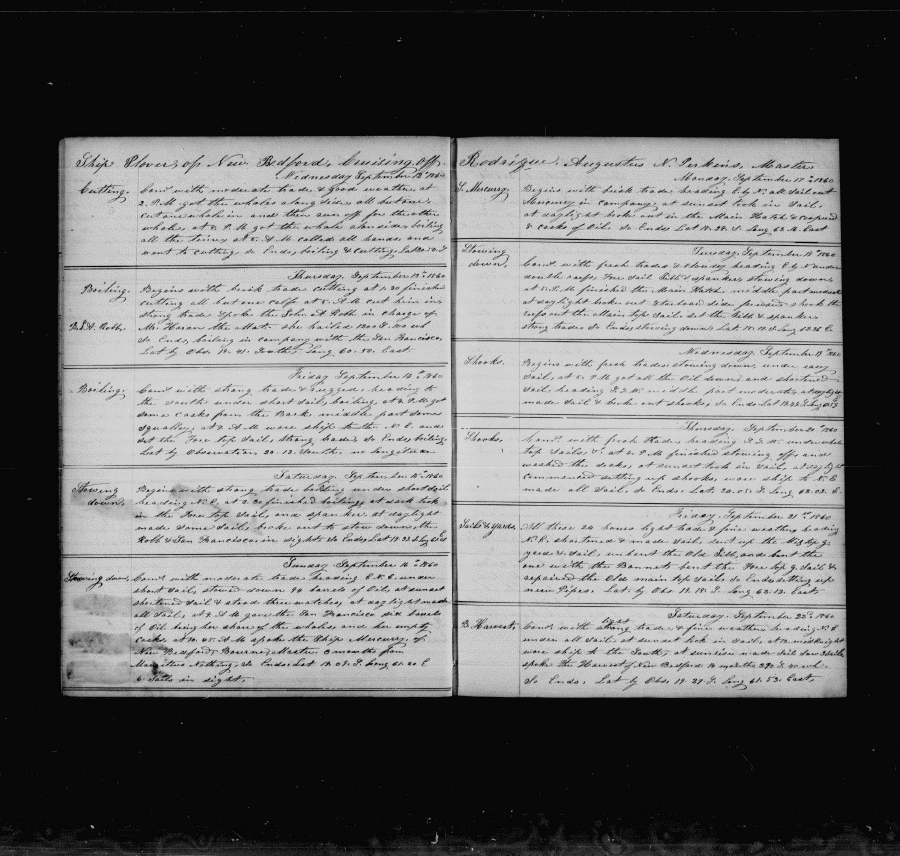 Ship Plover, of New Bedford, Cruising off
Wednesday September 12th 1860
Cutting. Comd with moderate trade & good weather, at
2. P.M got the whales alongside all but one,
cut one whale in and then run off for the other
whales, at 8. P.M got the whale alongside, boiling
all the time, at 5. A.M called all hands and
went to cutting So Ends, boiling & cutting,
Thursday. September 13th 1860
Boiling. Begins with brisk trade cutting at 1.30 finished
cutting all but one calfe at 5. A.M cut him in,
B.J.A. Roth. strong trade Spoke the John A Roth in charge of
Mr. Horan the Mate she hailed 1200 S. wh
So Ends, boiling in company with the San Francisco
Lat by Obs. 19. 41. South, Long 60. 50. East
Friday September 14th 1860
Boiling. Comd with strong trade & rugged heading to
the South under short Sail, boiling, at 2. P.M got
some casks from the Bark, middle part some
squally, at 2. A.M wore ship to the N. E. and
set the Fore top Sail, strong trade So Ends, boiling.
Lat by Observation 20. 13. South. no longitude
Saturday September 15th 1860
Stowing down. Begins with strong trade boiling under short sail
heading N.E, at 2.30 finished boiling, at dark took
in the Fore top Sail, and spanker, at daylight
made some Sail, broke out to stow down, the
Roth & San Francisco in sight So Ends, Lat 19. 23
Sunday September 16th 1860
Stowing down. Comd with moderate trade heading E.N.E. under
short Sail, stowed down 94 barrels of Oil, at sunset
shortened Sail & stood three watches, at daylight made
all Sail, at 9. A.M gave the San Francisco six barrels
of Oil being her share of the whales, and her empty
casks, at 10. 45. A.M spoke the Ship Mercury, of
New Bedford, Bourne, Master 3 months from
Mauritius Nothing, So Ends Lat 19. 03. S. Long 61. 20 E
6 Sails in sight,
Rodrique. Augustus N. Perkins, Master
Monday, September 17th 1860
S. Mercury. Begins with brisk trade heading E. by N. all Sail out
Mercury in company, at sunset took in Sail.
at daylight broke out in the Main Hatch & coopered
& casks of Oil. So Ends Lat 18. 28. S. Long 62. 16. East
Tuesday September 18th 1860
Stowing down. Comd with fresh trades & cloudy heading E by N under
double reefs, Fore Sail Jibb & spanker, stowing down,
at 5. P.M finished the Main Hatch middle part moderate
at daylight broke out Starboard side forward shook the
reefs out the Main top Sail set the Jibb & spanker
strong trades So Ends, stowing down.
Wednesday September 19th 1860
Shooks. Begins with fresh trades stowing down, under easy
Sail, at 5. P.M got all the Oil down and shortened
Sail, heading S.S.W. middle part moderate, at daylight
made Sail & broke out shooks, So Ends
Thursday. September 20th 1860
Shooks. Comd with fresh trades heading S.S.W. under whole
top Sails &c. at 4. P.M finished stowing off and
washed the decks, at sunset took in Sail, at daylight
commenced setting up shooks, wore ship to N.E
made all Sail, So Ends. Lat. 20. 05. S. Long 62. 02. E.
Friday September 21st 1860
Sails & yards. All these 24 hours light trade & fine weather, heading
N.E. shortened & made Sail, sent up the Miz top g.
yard & Sail, unbent the Old Jibb, and bent the
one with the Bonnet, bent the Fore top g. Sail &
repaired the Old main top Sail So Ends, setting up
new Pipes. Lat by Obs. 19. 18. S. Long 62. 13. East
Saturday. September 22d 1860
B. Harvest. Comd with light trade & fine weather heading N.E.
under all Sail, at sunset took in Sail, at 12. midnight
wore ship to the South, at sunrise made Sail Saw 3 Sails
spoke the Harvest of New Bedford 14 months 290 S. 40. wh.
So Ends. Lat by Obs. 19. 29. S. Long 61. 53. East,